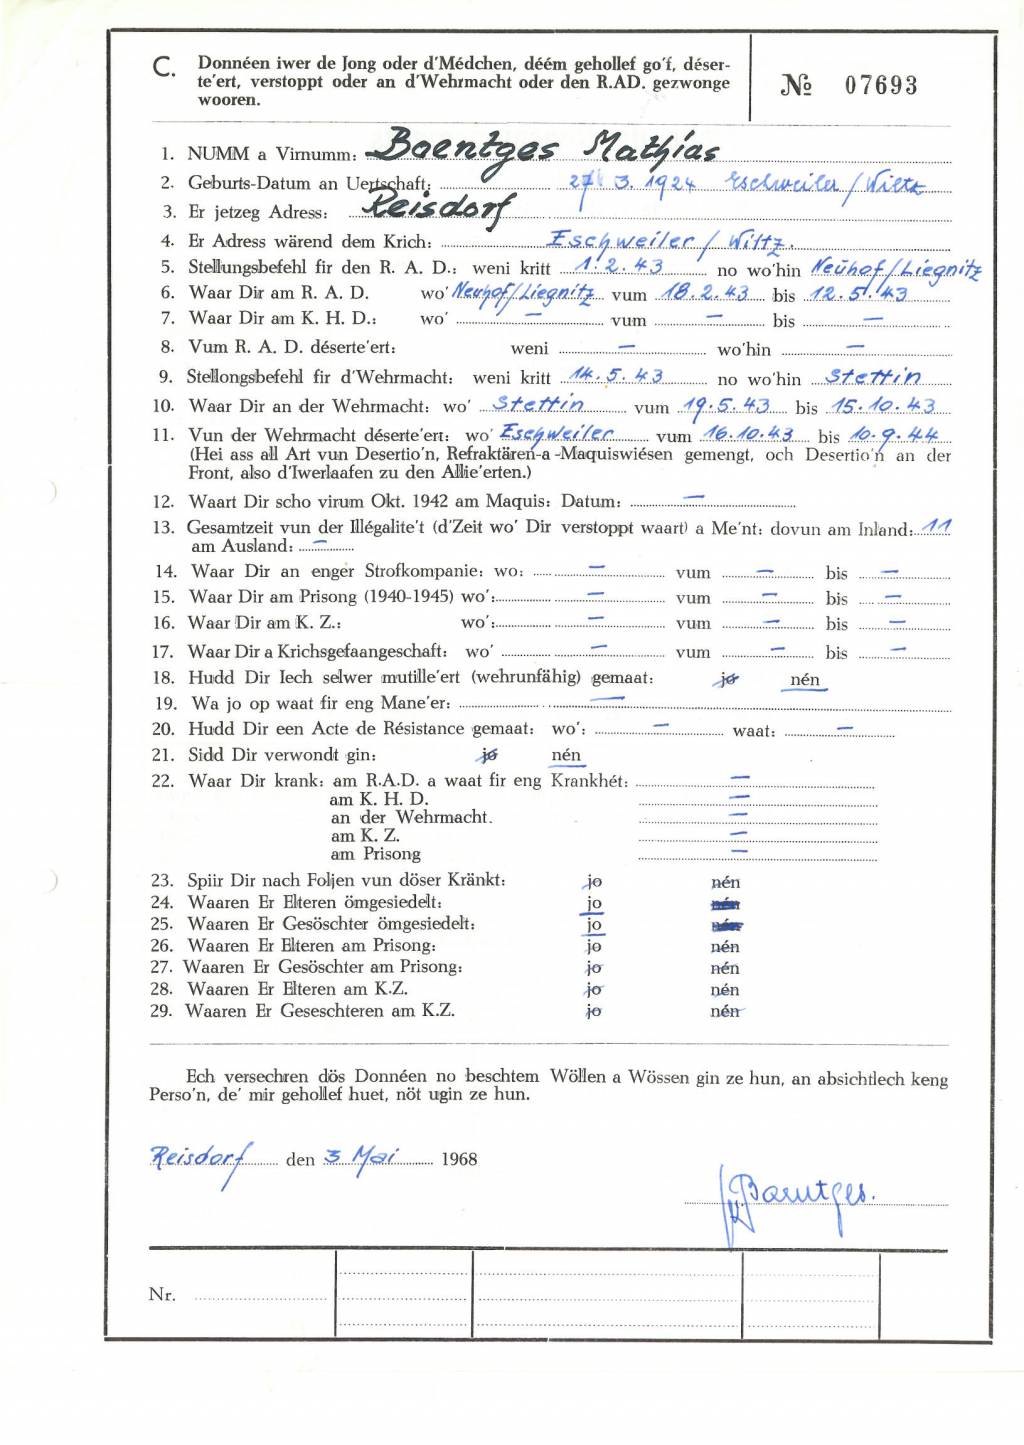 C. Donnéen iwer de Jong oder d'Médchen, déém gehollef go'f, déser-
te'ert, verstoppt oder an d'Wehrmacht oder den R.AD. gezwonge
wooren.
№ 07693
1. NUMM a Virnumm: Boentges Mathias
2. Geburts-Datum an Uertschaft: 27 3. 1924 Eschweiler / Wiltz
3. Er jetzeg Adress: Reisdorf
4. Er Adress wärend dem Krich: Eschweiler / Wiltz.
5. Stellungsbefehl fir den R. A. D.: weni kritt 1.2.43 no wo'hin Neuhof/Liegnitz
6. Waar Dir am R. A. D. wo' Neuhof/Liegnitz vum 18.2.43 bis 12.5.43
7. Waar Dir am K. H. D.: wo' — vum — bis —
8. Vum R. A. D. déserte'ert: weni — wo'hin —
9. Stellongsbefehl fir d'Wehrmacht: weni kritt 14.5.43 no wo'hin Stettin
10. Waar Dir an der Wehrmacht: wo' Stettin vum 19.5.43 bis 15.10.43
11. Vun der Wehrmacht déserte'ert: wo' Eschweiler vum 16.10.43 bis 10.9.44
(Hei ass all Art vun Desertio'n, Refraktären-a -Maquiswiésen gemengt, och Desertio'n an der
Front, also d'Iwerlaafen zu den Allie'erten.)
12. Waart Dir scho virum Okt. 1942 am Maquis: Datum: —
13. Gesamtzeit vun der Illégalite't (d'Zeit wo' Dir verstoppt waart) a Me'nt: dovun am Inland: 11
am Ausland: —
14. Waar Dir an enger Strofkompanie: wo: — vum — bis —
15. Waar Dir am Prisong (1940-1945) wo': — vum — bis —
16. Waar Dir am K. Z.: wo': — vum — bis —
17. Waar Dir a Krichsgefaangeschaft: wo' — vum — bis —
18. Hudd Dir Iech selwer mutille'ert (wehrunfähig) gemaat: jo nén
19. Wa jo op waat fir eng Mane'er: —
20. Hudd Dir een Acte de Résistance gemaat: wo': — waat: —
21. Sidd Dir verwondt gin: jo nén
22. Waar Dir krank: am R.A.D. a waat fir eng Krankhét: —
am K. H. D. —
an der Wehrmacht. —
am K. Z. —
am Prisong —
23. Spiir Dir nach Foljen vun döser Kränkt: jo nén
24. Waaren Er Elteren ömgesiedelt: jo nén
25. Waaren Er Gesöschter ömgesiedelt: jo nén
26. Waaren Er Elteren am Prisong: jo nén
27. Waaren Er Gesöschter am Prisong: jo nén
28. Waaren Er Elteren am K.Z. jo nén
29. Waaren Er Geseschteren am K.Z. jo nén
Ech versechren dös Donnéen no beschtem Wöllen a Wössen gin ze hun, an absichtlech keng
Perso'n, de' mir gehollef huet, nöt ugin ze hun.
Reisdorf den 3 Mai 1968
Boentges.
Nr.